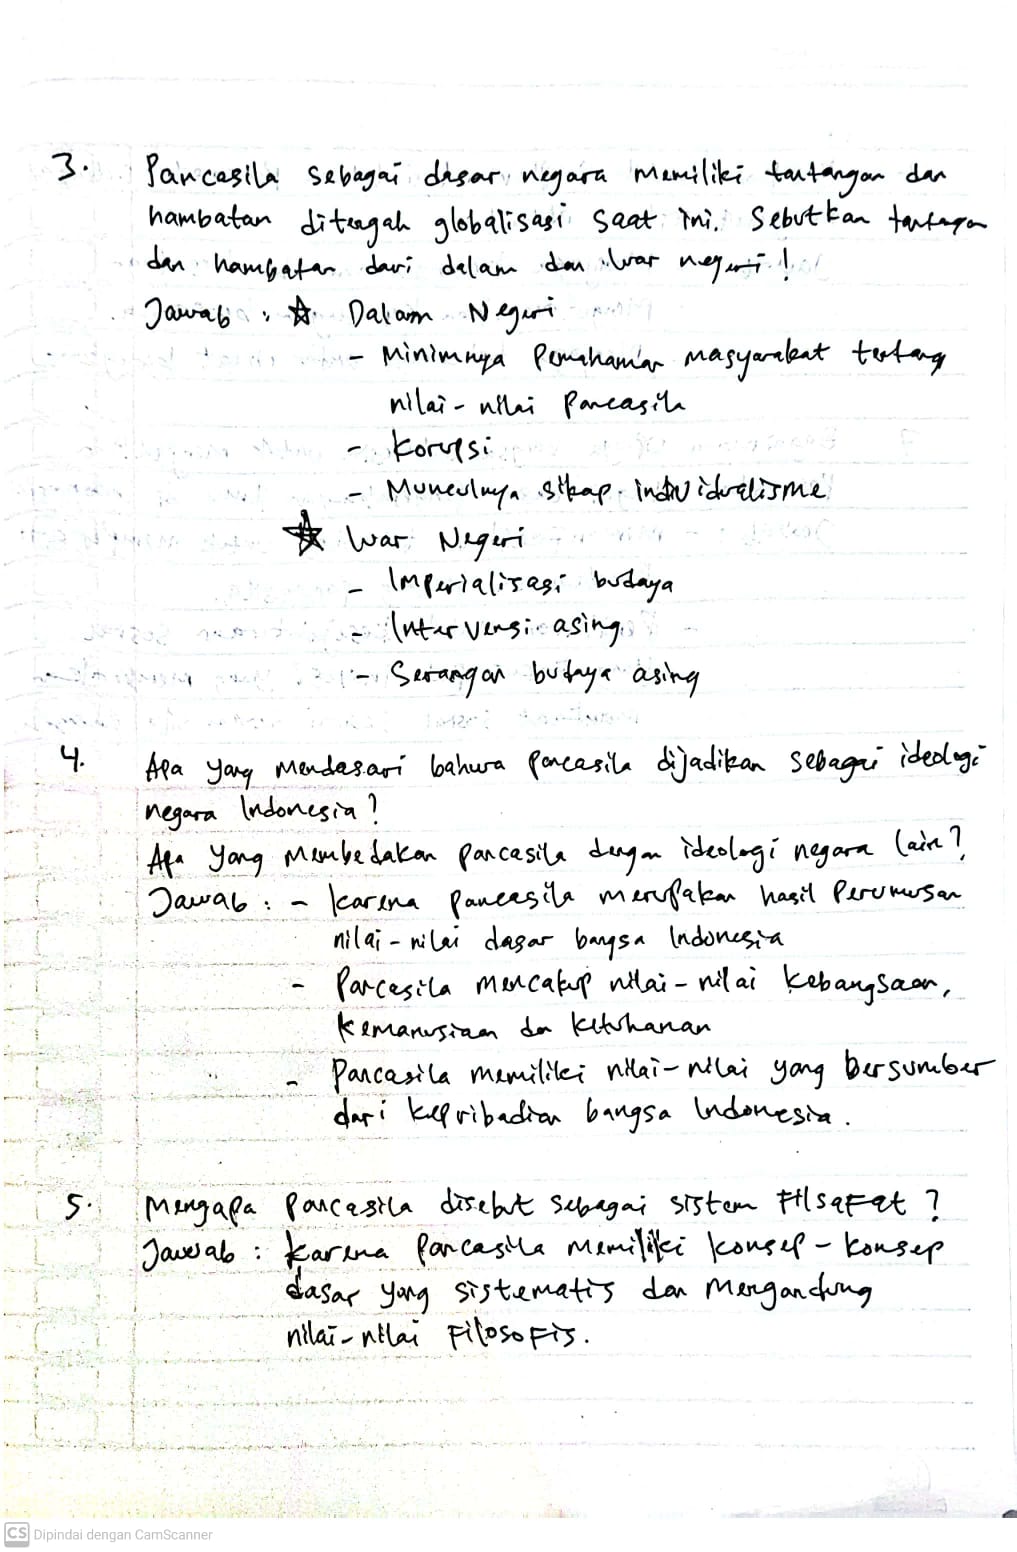 3. Pancasila sebagai dasar negara memiliki tantangan dan
hambatan ditengah globalisasi saat ini. Sebutkan tantangan
dan hambatan dari dalam dan luar negeri!
Jawab : ☆ Dalam Negeri
- Minimnya Pemahaman masyarakat tentang
nilai-nilai Pancasila
- Korupsi
- Munculnya sikap individualisme
☆ Luar Negeri
- Imperialisasi budaya
- Intervensi asing
- Serangan budaya asing
4. Apa yang Mendasari bahwa pancasila dijadikan sebagai ideologi
negara Indonesia?
Apa yang Membedakan pancasila dengan ideologi negara lain?
Jawab : - karena pancasila merupakan hasil Perumusan
nilai-nilai dasar bangsa Indonesia
- Pancasila mencakup nilai-nilai kebangsaan,
kemanusiaan dan ketuhanan
- Pancasila memiliki nilai-nilai yang bersumber
dari kepribadian bangsa Indonesia.
5. Mengapa Pancasila disebut sebagai sistem Filsafat?
Jawab : karena Pancasila memiliki konsep-konsep
dasar yang sistematis dan Mengandung
nilai-nilai Filosofis.
CS Dipindai dengan CamScanner